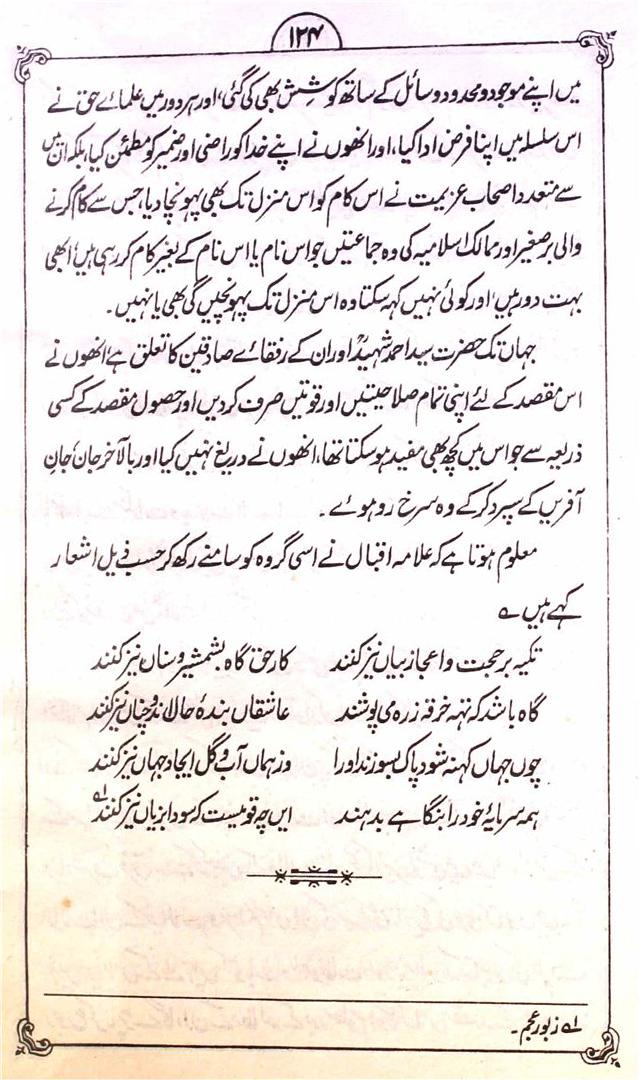 ۱۲۴
میں اپنے موجود و محدود وسائل کے ساتھ کوشش بھی کی گئی، اور ہر دور میں علمائے حق نے
اس سلسلہ میں اپنا فرض ادا کیا، اور انھوں نے اپنے خدا کو راضی اور ضمیر کو مطمئن کیا، بلکہ ان میں
سے متعدد اصحاب عزیمت نے اس کام کو اس منزل تک بھی پہونچا دیا، جس سے کام کرنے
والی برصغیر اور ممالک اسلامیہ کی وہ جماعتیں جو اس نام یا اس نام کے بغیر کام کر رہی ہیں، ابھی
بہت دور ہیں، اور کوئی نہیں کہہ سکتا وہ اس منزل تک پہونچیں گی بھی یا نہیں۔
جہاں تک حضرت سید احمد شہیدؒ اور ان کے رفقائے صادقین کا تعلق ہے، انھوں نے
اس مقصد کے لئے اپنی تمام صلاحیتیں اور قوتیں صرف کر دیں اور حصول مقصد کے کسی
ذریعہ سے جو اس میں کچھ بھی مفید ہو سکتا تھا، انھوں نے دریغ نہیں کیا اور بالآخر جان، جانِ
آفریں کے سپرد کر کے وہ سرخ رو ہوئے۔
معلوم ہوتا ہے کہ علامہ اقبال نے اسی گروہ کو سامنے رکھ کر حسب ذیل اشعار
کہے ہیں ؎
تکیہ بر حجت و اعجاز بیاں نیز کنند کار حق گاہ بشمشیر و سناں نیز کنند
گاہ باشد کہ تہہ خرقہ زرہ می پوشند عاشقاں بندۂ حال اند و چناں نیز کنند
چوں جہاں کہنہ شود پاک بسوزند او را وز ہماں آب و گل ایجاد جہاں نیز کنند
ہمہ سرمایۂ خود را بنگاہے بدہند ایں چہ قومیست کہ سودا بزیاں نیز کنند ؎۱
؎۱ زبور عجم۔